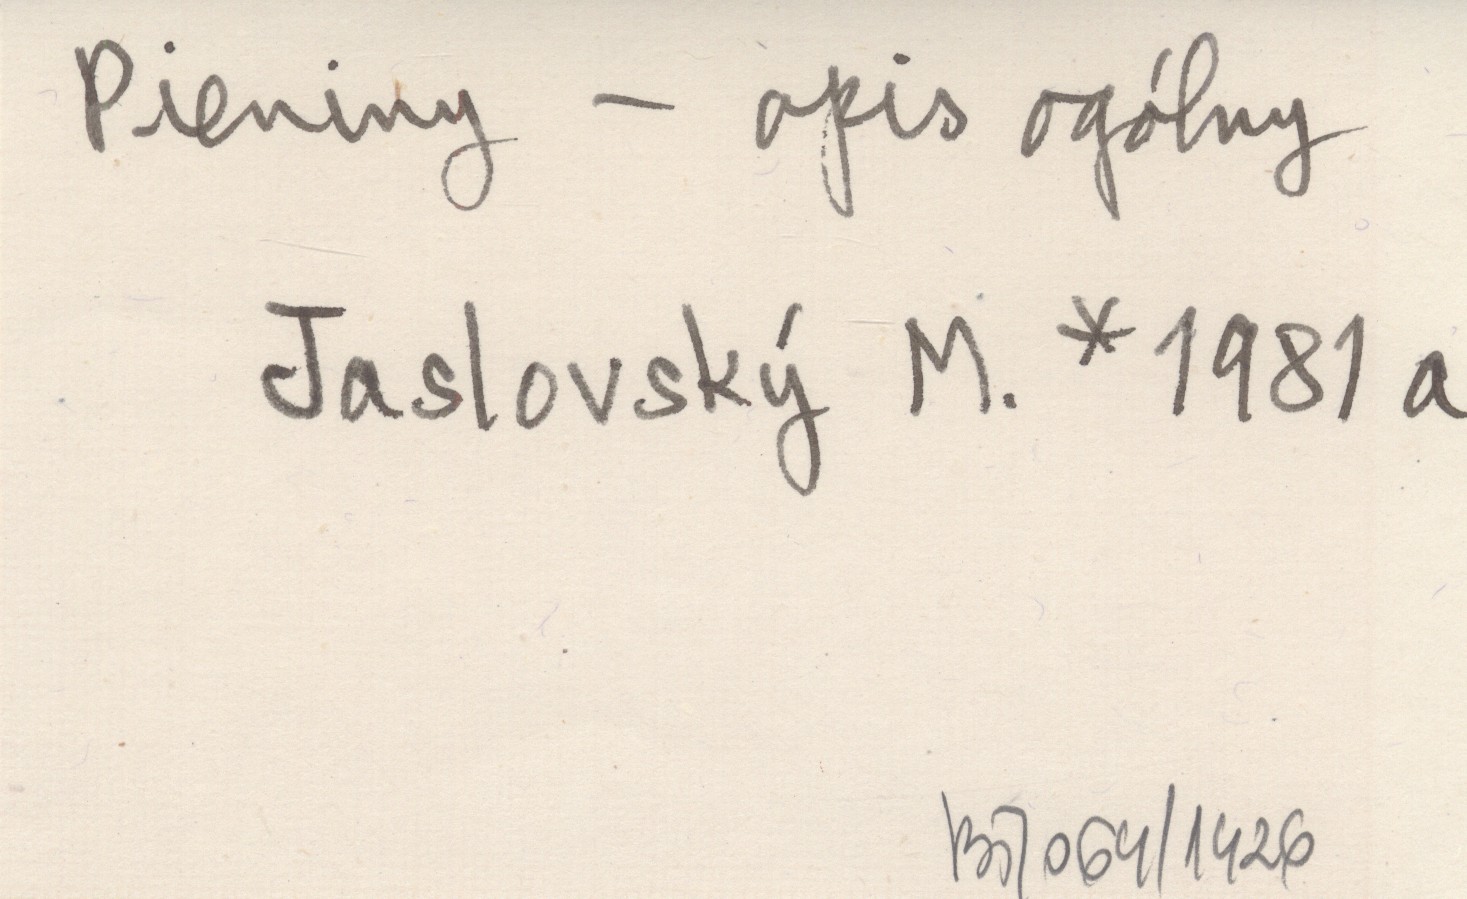 Pieniny – opis ogólny
Jaslovský M. * 1981 a
064/1426